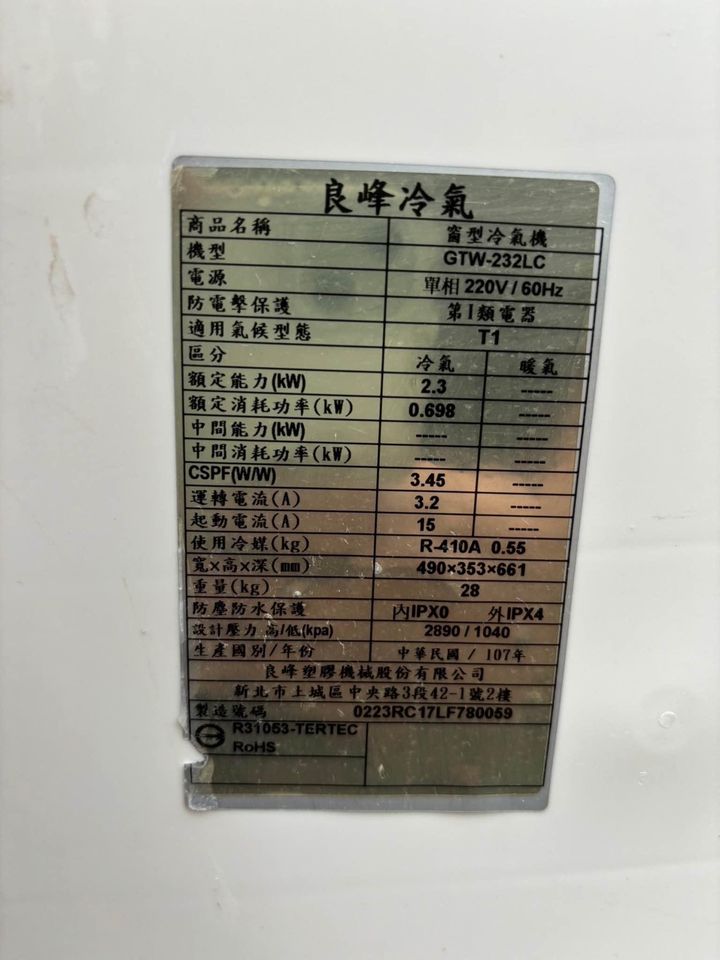 良峰冷氣
商品名稱 窗型冷氣機
機型 GTW-232LC
電源 單相 220V / 60Hz
防電擊保護 第I類電器
適用氣候型態 T1
區分 冷氣 暖氣
額定能力(kW) 2.3 -----
額定消耗功率(kW) 0.698 -----
中間能力(kW) ----- -----
中間消耗功率(kW) ----- -----
CSPF(W/W) 3.45 -----
運轉電流(A) 3.2 -----
起動電流(A) 15 -----
使用冷媒(kg) R-410A 0.55
寬×高×深(mm) 490×353×661
重量(kg) 28
防塵防水保護 內IPX0 外IPX4
設計壓力 高/低(kpa) 2890 / 1040
生產國別/年份 中華民國 / 107年
良峰塑膠機械股份有限公司
新北市土城區中央路3段42-1號2樓
製造號碼 0223RC17LF780059
R31053-TERTEC
RoHS